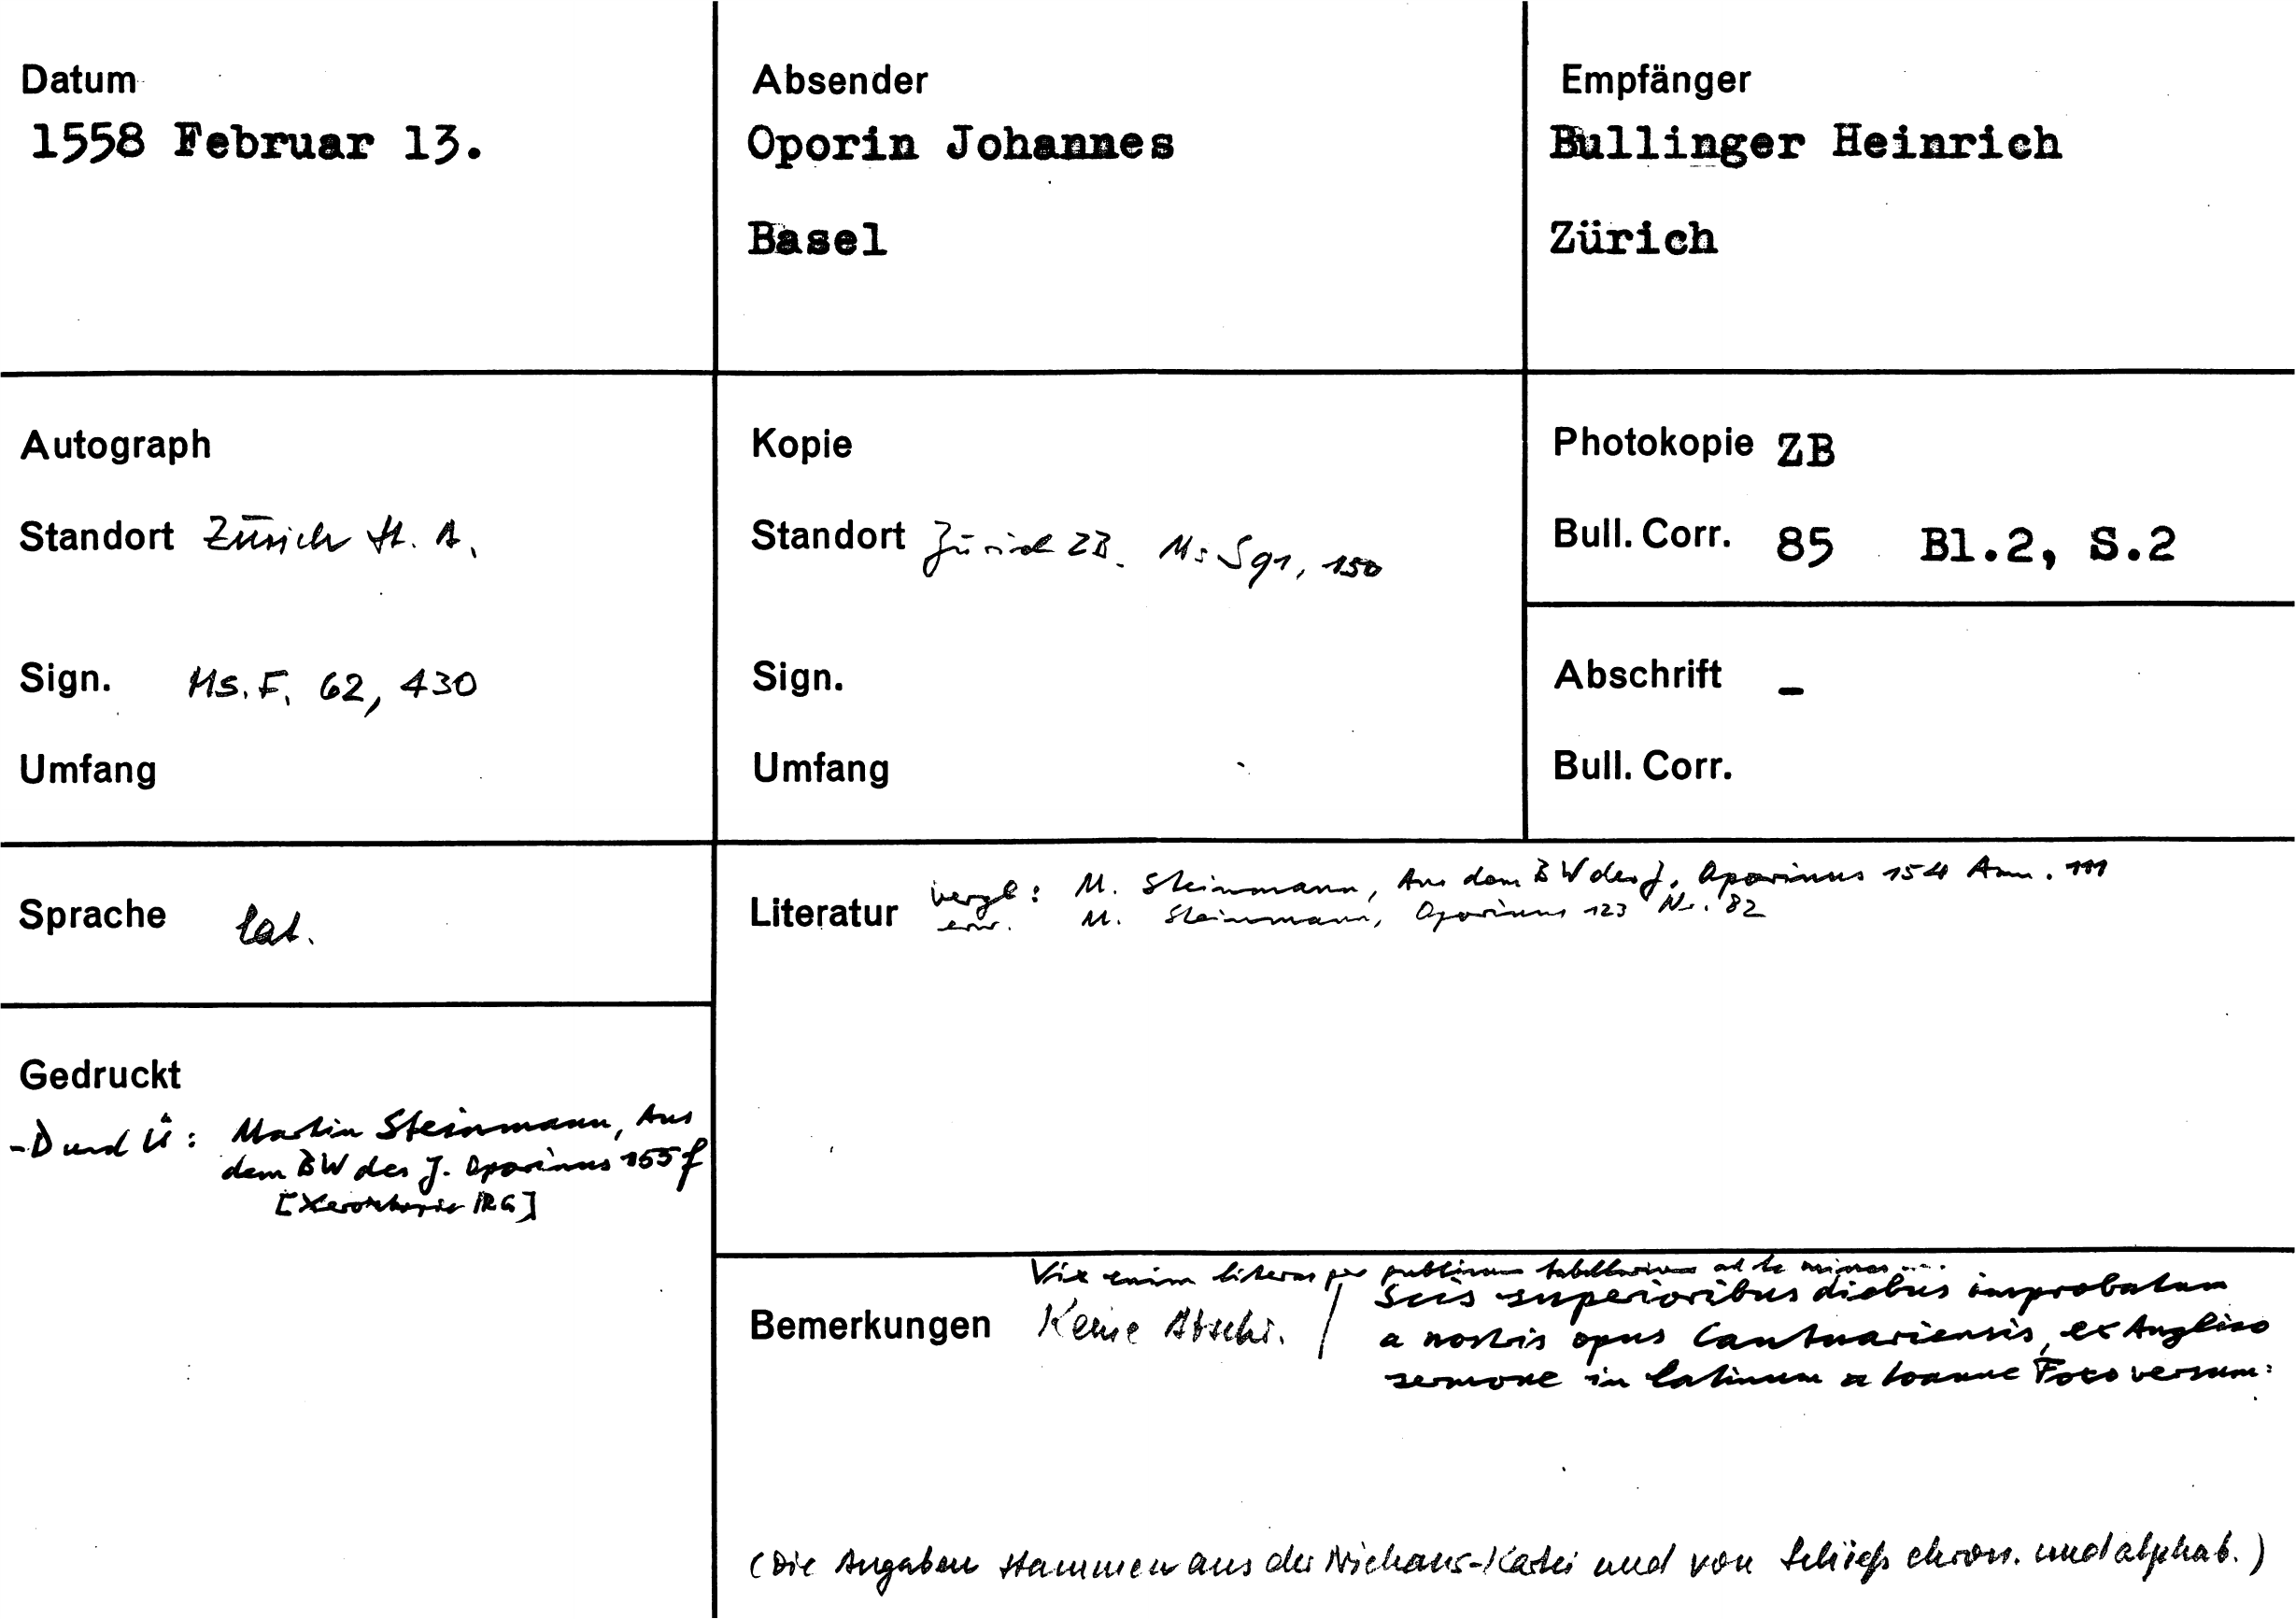 Datum
1558 Februar 13.
Absender
Oporin Johannes
Basel
Empfänger
Bullinger Heinrich
Zürich
Autograph
Standort Zürich St. A.
Sign. Ms. F. 62, 430
Umfang
Kopie
Standort Zürich ZB. Ms S 91, 150
Sign.
Umfang
Photokopie ZB
Bull. Corr. 85 Bl.2, S.2
Abschrift -
Bull. Corr.
Sprache lat.
Literatur vergl: M. Steinmann, Aus dem BW des J. Oporinus 154 Anm. 111
erw. M. Steinmann, Oporinus 123 Nr. 82
Gedruckt
- D und Ü: Martin Steinmann, Aus
dem BW des J. Oporinus 155 f
[Xerokopie IRG]
Vix enim literas per publicum tabellarium ad te ...
Bemerkungen Keine Abschr. / Scis superioribus diebus improbatum
a nostris opus Cantuariensis, ex Anglico
sermone in latinum a Ioanne Foxo versum:
(Die Angaben stammen aus der Niehans-Kartei und von Schieß chron. und alphab.)